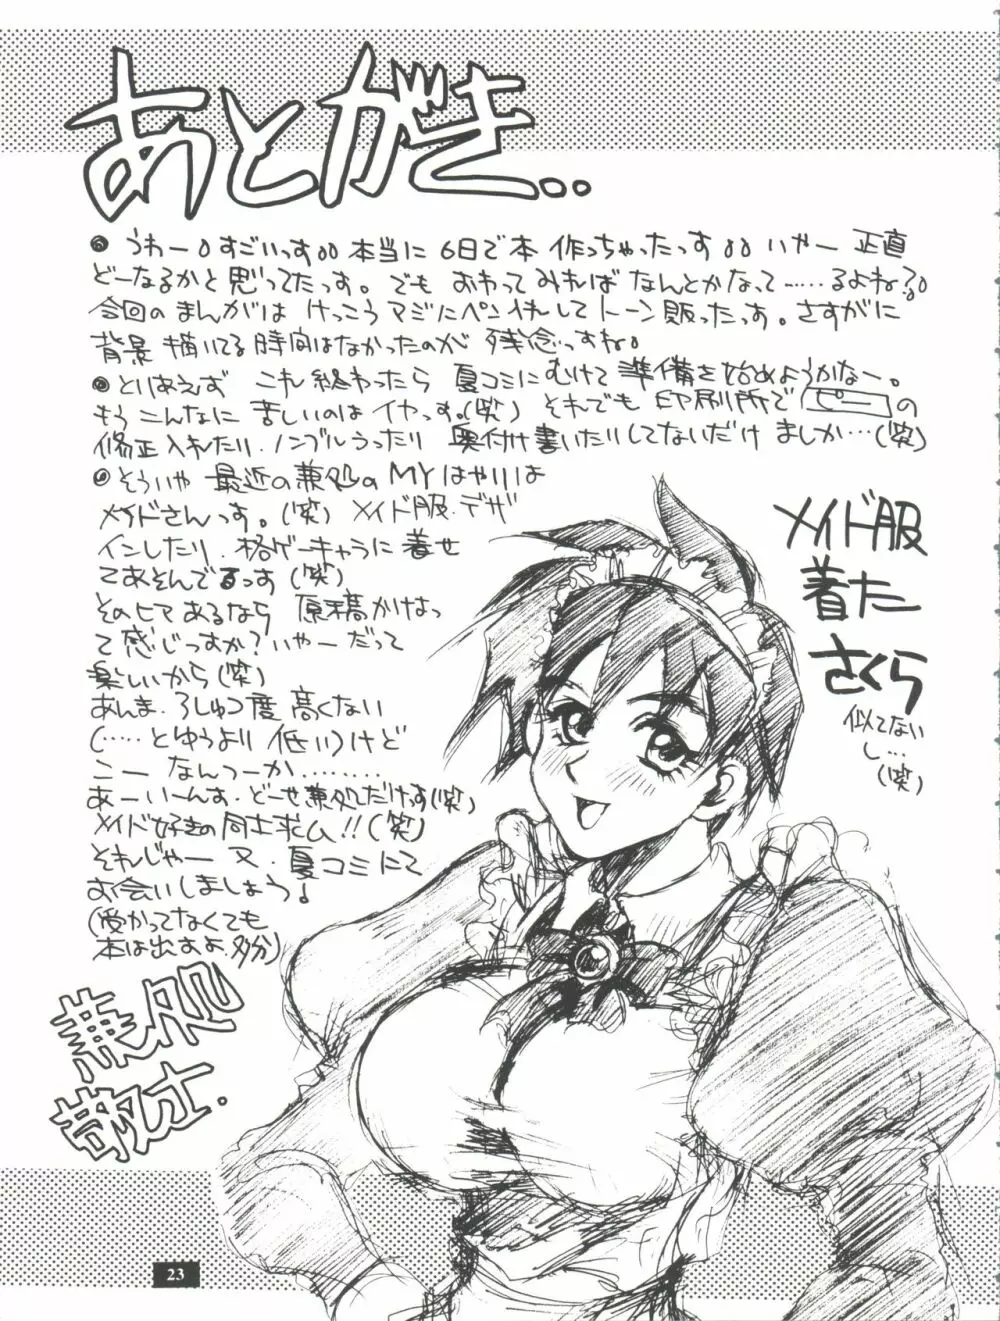 あとがき..
● うわー。すごいっす。。本当に 6日で本 作っちゃったっす。。いやー 正直
どーなるかと思ってたっす。でも おわってみれば なんとかなって……るよね?。
今回の まんがは けっこう マジにペン入れして トーン 貼ったっす。さすがに
背景 描いてる 時間はなかったのが 残念っすね。
● とりあえず これ終わったら 夏コミにむけて 準備を始めようかなー。
もう こんなに 苦しいのは イヤっす。(笑) それでも 印刷所で ピー の
修正入れたり、ノンブルうったり 奥付け書いたりしてないだけ ましか…(笑)
● そういや 最近の兼処の MYはやりは
メイドさんっす。(笑) メイド服、デザ
インしたり、格ゲーキャラに 着せ
てあそんでるっす(笑)
そのヒマあるなら 原稿かけな
って感じっすか? いやー だって
楽しいから(笑)
あんま、ろしゅつ度 高くない
(……とゆうより 低い)けど
こー なんつーか………
あーいーんす、どーせ兼処だけっす(笑)
メイド好きの同士求ム!!(笑)
それじゃー 又、夏コミにて
お会いしましょう!
(受かってなくても
本は出すよ、多分)
兼処
敬士.
メイド服
着た
さくら
似てない
し…
(笑)
23